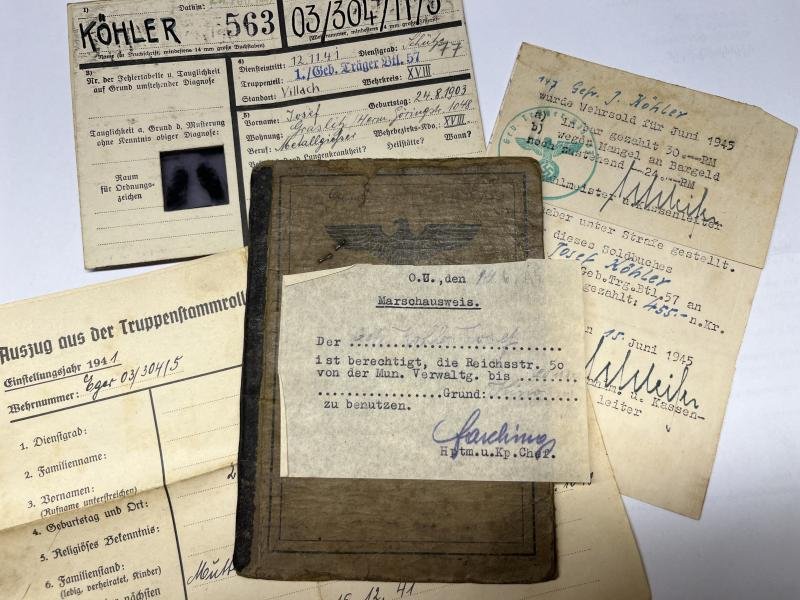 1)
Datum:
KÖHLER
563
03/304/11/5
Name (in Druckschrift, mindestens 14 mm große Buchstaben)
(Wehrnummer, mindestens 14 mm große Ziffern)
3)
Nr. der Fehlertabelle u. Tauglichkeit
auf Grund umstehender Diagnose
Tauglichkeit a. Grund d. Musterung
ohne Kenntnis obiger Diagnose:
Raum
für Ordnungs-
zeichen
4)
Diensteintritt: 12.11.41 Dienstgrad: Schütze
Truppenteil: 1./Geb. Träger Btl. 57
Standort: Villach Wehrkreis: XVIII
5)
Vorname: Josef Geburtstag: 24.8.1903
Wohnung: Graslitz, Herm. Göringstr. 1048
Beruf: Metallgießer Wehrbezirks-Kdo.: XVIII
Lungenkrankheit? Heilstätte? Wann?
Gefr. J. Köhler
wurde Wehrsold für Juni 1945
a) in bar gezahlt 30.--RM
b) wegen Mangel an Bargeld
noch zustehend 24.--RM
Zahlmeister u. Kassenleiter
aber unter Strafe gestellt.
dieses Soldbuches
Josef Köhler
Geb.Trg.Btl.57 an
gezahlt: 455.- n.Kr.
15. Juni 1945
u. Kassen-
leiter
O.U.,den
Marschausweis.
Der
ist berechtigt, die Reichsstr. 50
von der Mun. Verwaltg. bis
Grund:
zu benutzen.
Hptm.u.Kp.Chef.
Auszug aus der Truppenstammroll
Einstellungsjahr 1941
Wehrnummer: Eger 03/304/5
1. Dienstgrad:
2. Familienname:
3. Vornamen:
(Rufname unterstreichen)
4. Geburtstag und Ort:
5. Religiöses Bekenntnis:
6. Familienstand:
(ledig, verheiratet, Kinder)
nächsten
12. 41